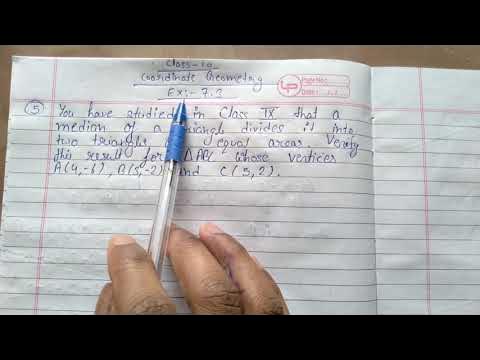 Class-10
Coordinate Geometry
Ex:- 7.3
Page No:
Date:
(5) You have studied in Class IX that a
median of a triangle divides it into
two triangles of equal areas. Verify
this result for ΔABC whose vertices
A(4,-6), B(3,-2) and C(5,2).